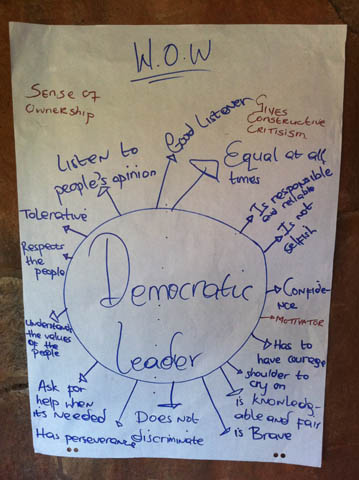 W.O.W
Sense of
Ownership
Good Listener
Gives
Constructive
Critisism
Listen to
people's opinion
Equal at all
times
Is responsible
and reliable
Is not
selfish
Tolerative
Respects
the
people
Democratic
Leader
Confide-
nce
Motivator
Understands
the values
of the
people
Has to
have courage
shoulder to
cry on
Ask for
help when
its needed
is knowledg-
able and fair
is Brave
Does not
discriminate
Has perseverance